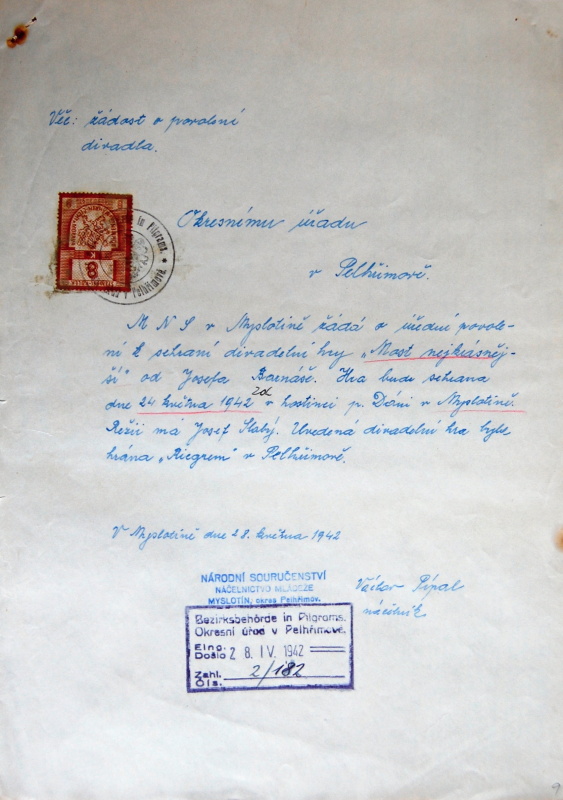 Věc: žádost o povolení
divadla.
Okresnímu úřadu
v Pelhřimově.
M N S v Myslotině žádá o úřední povole-
ní k sehraní divadelní hry „Most nejkrásněj-
ší" od Josefa Barnáše. Hra bude sehrana
20
dne 24 května 1942 v hostinci p. Dáni v Myslotině.
Režii má Josef Slabý. Uvedená divadelní hra byla
hrána „Riegrem" v Pelhřimově.
V Myslotině dne 28. května 1942
NÁRODNÍ SOURUČENSTVÍ
NÁČELNICTVO MLÁDEŽE
MYSLOTÍN, okres Pelhřimov.
Václav Pípal
náčelník
Bezirksbehörde in Pilgrams.
Okresní úřad v Pelhřimově.
Eing.
Došlo 28. IV. 1942
Zahl.
Čís. 2/182
in Pilgrams. *
v Pelhřimově.
8
K
9